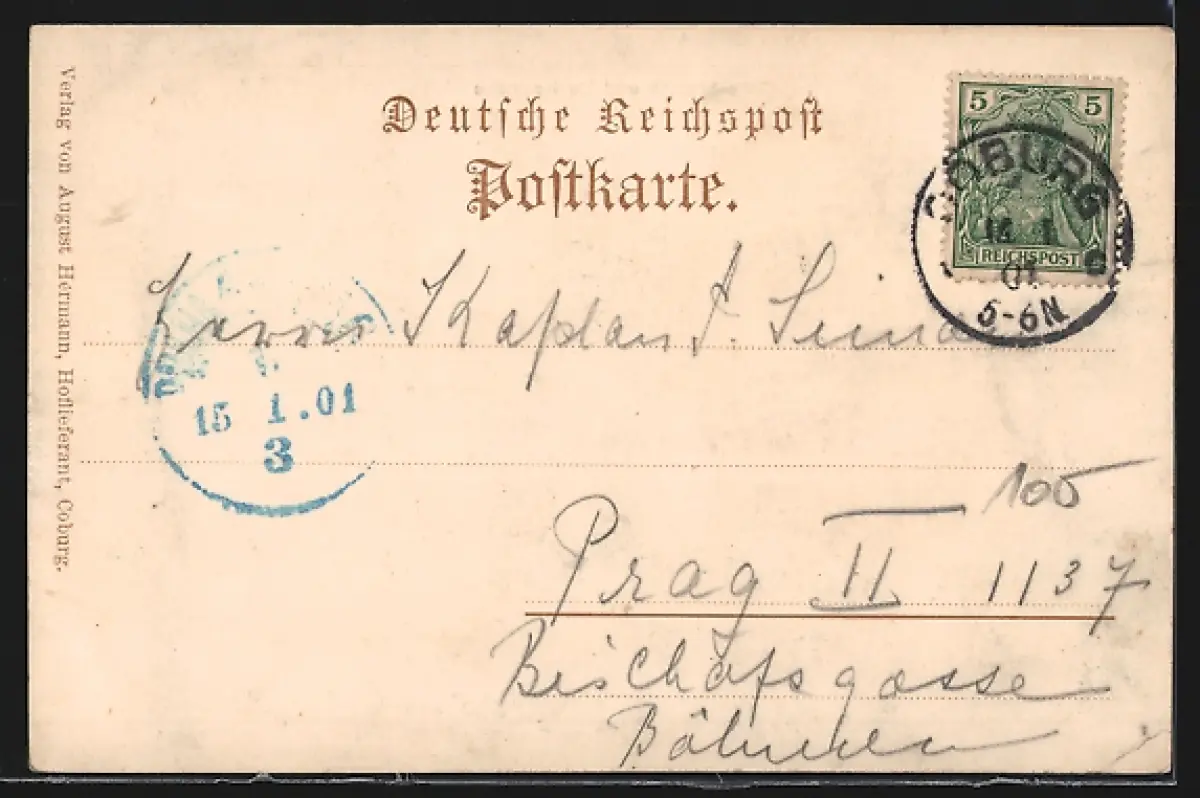 Deutsche Reichspost
Postkarte.
5 5
REICHSPOST
COBURG
01
5-6N
Herrn Kaplan
15 1.01
3
100
Prag II 1137
Bischofsgasse
Böhmen
Verlag von August Hermann, Hoflieferant, Coburg.